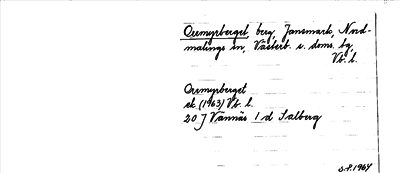 Ormyrberget berg, Jansmark, Nord-
malings sn, Västerb. s. doms. bg,
Vb. l.
Ormyrberget
ek (1963) Vb. l.
20 J Vännäs 1 d Salberg
1964